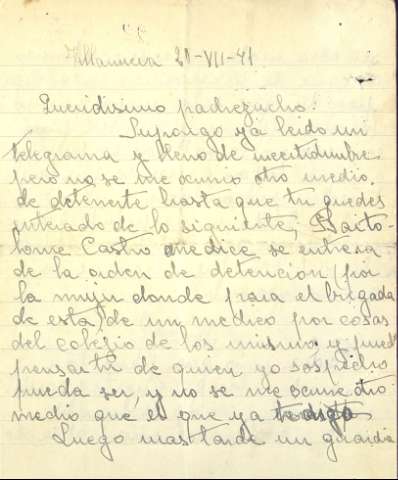 Villanueva 20-VII-41
Queridisimo padrezucho:
Supongo ya leido mi
telegrama y lleno de incertidumbre
pero no se me ocurrio otro medio
de detenerte hasta que tu quedes
enterado de lo siguiente, Barto-
lome Castro me dice se entera
de la orden de detencion (por
la mujer donde para el brigada
de esta) de un medico por cosas
del colegio de los mismos y pued
pensar tu de quien yo sospecho
pueda ser, y no se me ocurre otro
medio que el que ya te digo
Luego mas tarde un guardia